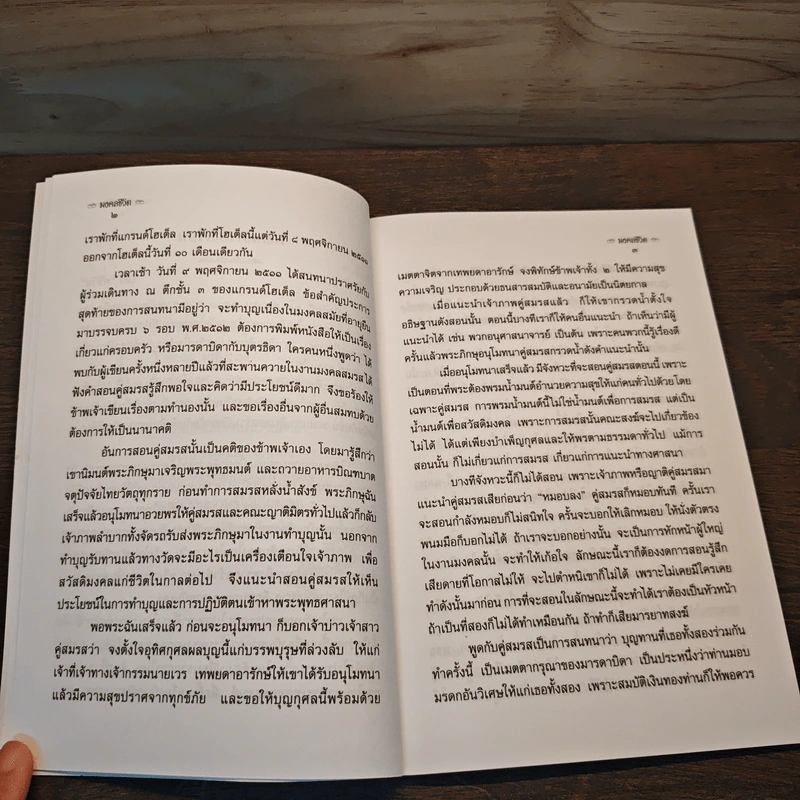 มงคลชีวิต
๒
เราพักที่แกรนด์โฮเต็ล เราพักที่โฮเต็ลนี้แต่วันที่ ๘ พฤศจิกายน ๒๕๐๐
ออกจากโฮเต็ลนี้วันที่ ๑๐ เดือนเดียวกัน
เวลาเช้า วันที่ ๙ พฤศจิกายน ๒๕๐๐ ได้สนทนาปราศรัยกับ
ผู้ร่วมเดินทาง ณ ตึกชั้น ๓ ของแกรนด์โฮเต็ล ข้อสำคัญประการ
สุดท้ายของการสนทนามีอยู่ว่า จะทำบุญเนื่องในมงคลสมัยที่อายุยืน
มาบรรจบครบ ๖ รอบ พ.ศ.๒๕๑๒ ต้องการพิมพ์หนังสือให้เป็นเรื่อง
เกี่ยวแก่ครอบครัว หรือมารดาบิดากับบุตรธิดา ใครคนหนึ่งพูดว่า ได้
พบกับผู้เขียนครั้งหนึ่งหลายปีแล้วที่สะพานควายในงานมงคลสมรสได้
ฟังคำสอนคู่สมรสรู้สึกพอใจและคิดว่ามีประโยชน์ดีมาก จึงขอร้องให้
ข้าพเจ้าเขียนเรื่องตามทำนองนั้น และขอเรื่องอื่นจากผู้อื่นสมทบด้วย
ต้องการให้เป็นนานาคติ
อันการสอนคู่สมรสนั้นเป็นคติของข้าพเจ้าเอง โดยมารู้สึกว่า
เขานิมนต์พระภิกษุมาเจริญพระพุทธมนต์ และถวายอาหารบิณฑบาต
จตุปัจจัยไทยวัตถุทุกราย ก่อนทำการสมรสหลั่งน้ำสังข์ พระภิกษุฉัน
เสร็จแล้วอนุโมทนาอวยพรให้คู่สมรสและคณะญาติมิตรทั่วไปแล้วก็กลับ
เจ้าภาพลำบากทั้งจัดรถรับส่งพระภิกษุมาในงานทำบุญนั้น นอกจาก
ทำบุญรับทานแล้วทางวัดจะมีอะไรเป็นเครื่องเตือนใจเจ้าภาพ เพื่อ
สวัสดิมงคลแก่ชีวิตในกาลต่อไป จึงแนะนำสอนคู่สมรสให้เห็น
ประโยชน์ในการทำบุญและการปฏิบัติตนเข้าหาพระพุทธศาสนา
พอพระฉันเสร็จแล้ว ก่อนจะอนุโมทนา ก็บอกเจ้าบ่าวเจ้าสาว
คู่สมรสว่า จงตั้งใจอุทิศกุศลผลบุญนี้แก่บรรพบุรุษที่ล่วงลับ ให้แก่
เจ้าที่เจ้าทางเจ้ากรรมนายเวร เทพยดาอารักษ์ให้เขาได้รับอนุโมทนา
แล้วมีความสุขปราศจากทุกข์ภัย และขอให้บุญกุศลนี้พร้อมด้วย
มงคลชีวิต
๓
เมตตาจิตจากเทพยดาอารักษ์ จงพิทักษ์ข้าพเจ้าทั้ง ๒ ให้มีความสุข
ความเจริญ ประกอบด้วยธนสารสมบัติและอนามัยเป็นนิตยกาล
เมื่อแนะนำเจ้าภาพคู่สมรสแล้ว ก็ให้เขากรวดน้ำตั้งใจ
อธิษฐานดังสอนนั้น ตอนนี้บางทีเราก็ให้คนอื่นแนะนำ ถ้าเห็นว่ามีผู้
แนะนำได้ เช่น พวกอนุศาสนาจารย์ เป็นต้น เพราะคนพวกนี้รู้เรื่องดี
ครั้นแล้วพระภิกษุอนุโมทนาคู่สมรสกรวดน้ำดังคำแนะนำนั้น
เมื่ออนุโมทนาเสร็จแล้ว มีจังหวะที่จะสอนคู่สมรสตอนนี้ เพราะ
เป็นตอนที่พระต้องพรมน้ำมนต์อำนวยความสุขให้แก่คนทั่วไปด้วยโดย
เฉพาะคู่สมรส การพรมน้ำมนต์นี้ไม่ใช่น้ำมนต์เพื่อการสมรส แต่เป็น
น้ำมนต์เพื่อสวัสดิมงคล เพราะการสมรสนั้นคณะสงฆ์จะไปเกี่ยวข้อง
ไม่ได้ ได้แต่เพียงบำเพ็ญกุศลและให้พรตามธรรมดาทั่วไป แม้การ
สอนนั้น ก็ไม่เกี่ยวแก่การสมรส เกี่ยวแก่การแนะนำทางศาสนา
บางทีจังหวะนี้ก็ไม่ได้สอน เพราะเจ้าภาพหรือญาติคู่สมรสมา
แนะนำคู่สมรสเสียก่อนว่า “หมอบลง” คู่สมรสก็หมอบทันที ครั้นเรา
จะสอนกำลังหมอบก็ไม่สนิทใจ ครั้นจะบอกให้เลิกหมอบ ให้นั่งตัวตรง
พนมมือก็บอกไม่ได้ ถ้าเราจะบอกอย่างนั้น จะเป็นการหักหน้าผู้ใหญ่
ในงานมงคลนั้น จะทำให้เก้อใจ ลักษณะนี้เราก็ต้องงดการสอนรู้สึก
เสียดายที่โอกาสไม่ให้ จะไปตำหนิเขาก็ไม่ได้ เพราะไม่เคยมีใครเคย
ทำดังนั้นมาก่อน การที่จะสอนในลักษณะนี้จะทำได้เราต้องเป็นหัวหน้า
ถ้าเป็นที่สองก็ไม่ได้ทำเหมือนกัน ถ้าทำก็เสียมารยาทสงฆ์
พูดกับคู่สมรสเป็นการสนทนาว่า บุญทานที่เธอทั้งสองร่วมกัน
ทำครั้งนี้ เป็นเมตตากรุณาของมารดาบิดา เป็นประหนึ่งว่าท่านมอบ
มรดกอันวิเศษให้แก่เธอทั้งสอง เพราะสมบัติเงินทองท่านก็ให้พอควร